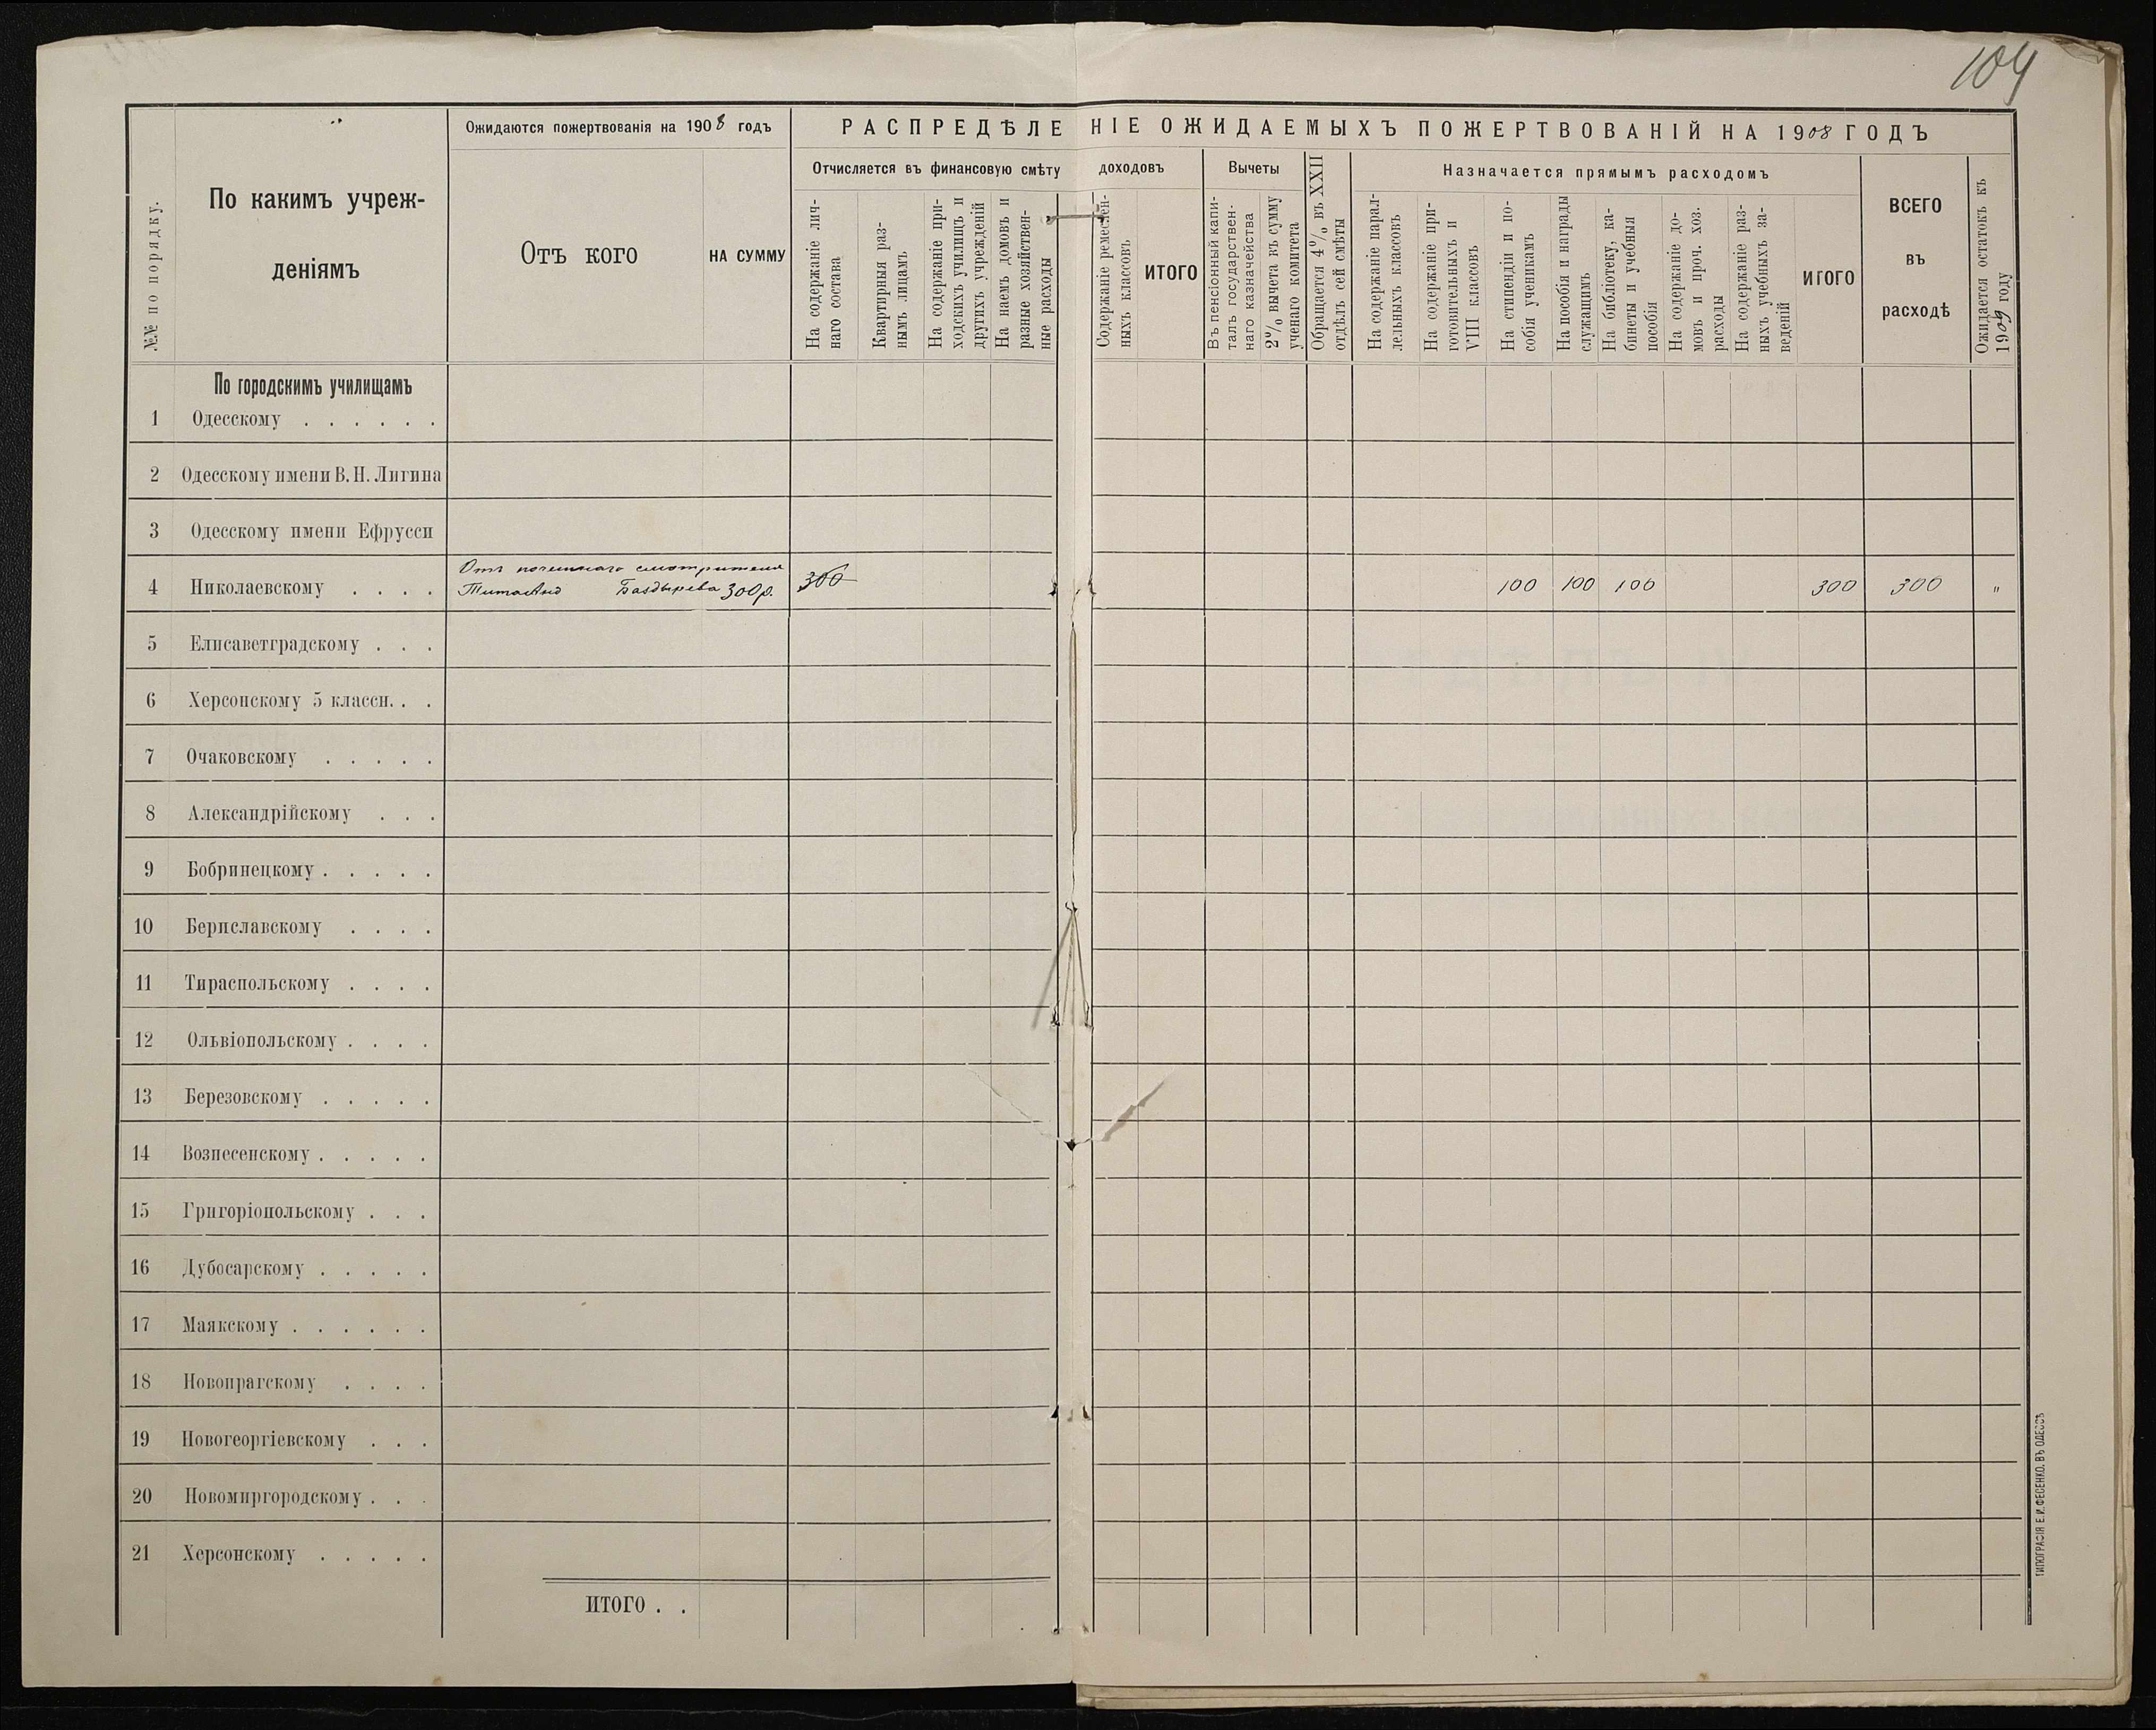 104
№№ по порядку.
По какимъ учреж-
деніямъ
Ожидаются пожертвованія на 1908 годъ
Отъ кого
НА СУММУ
РАСПРЕДѢЛЕНІЕ ОЖИДАЕМЫХЪ ПОЖЕРТВОВАНІЙ НА 1908 ГОДЪ
Отчисляется въ финансовую смѣту доходовъ
На содержаніе лич-
наго состава
Квартирныя раз-
нымъ лицамъ
На содержаніе при-
ходскихъ училищъ и
другихъ учрежденій
На наемъ домовъ и
разные хозяйствен-
ные расходы
Содержаніе ремеслен-
ныхъ классовъ
ИТОГО
Вычеты
Въ пенсіонный капи-
талъ государствен-
наго казначейства
2% вычета къ сумму
ученаго комитета
Обращается 4% въ XXII
отдѣлъ сей смѣты
Назначается прямымъ расходомъ
На содержаніе парал-
лельныхъ классовъ
На содержаніе при-
готовительныхъ и
VIII классовъ
На стипендіи и по-
собія ученикамъ
На пособія и награды
служащимъ
На библіотеку, ка-
бинеты и учебныя
пособія
На содержаніе до-
мовъ и проч. хоз.
расходы
На содержаніе раз-
ныхъ учебныхъ за-
веденій
ИТОГО
ВСЕГО
въ
расходѣ
Ожидается остатокъ къ
1909 году
По городскимъ училищамъ
1 Одесскому . . . . . .
2 Одесскому имени В. Н. Лигина
3 Одесскому имени Ефрусси
Отъ почетнаго смотрителя
4 Николаевскому . . . . 300р. 300 100 100 100 300 300 "
5 Елисаветградскому . . .
6 Херсонскому 5 классн. . .
7 Очаковскому . . . . .
8 Александрійскому . . .
9 Бобринецкому . . . . .
10 Бериславскому . . . .
11 Тираспольскому . . . .
12 Ольвіопольскому . . . .
13 Березовскому . . . . .
14 Вознесенскому . . . . .
15 Григоріопольскому . . .
16 Дубосарскому . . . . .
17 Маякскому . . . . . .
18 Новопрагскому . . . .
19 Новогеоргіевскому . . .
20 Новомиргородскому . . .
21 Херсонскому . . . . .
ИТОГО . .
ТИПОГРАФІЯ Е. И. ФЕСЕНКО, ВЪ ОДЕССѢ